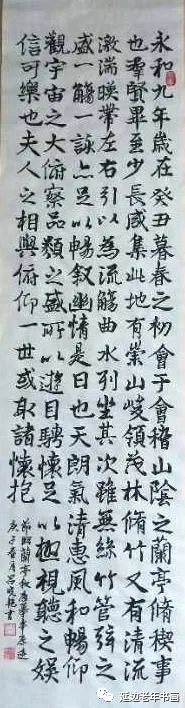 永和九年歲在癸丑暮春之初會于會稽山陰之蘭亭脩稧事
也羣賢畢至少長咸集此地有崇山峻領茂林脩竹又有清流
激湍暎帶左右引以為流觴曲水列坐其次雖無絲竹管弦之
盛一觴一詠亦足以暢叙幽情是日也天朗氣清惠風和暢仰
觀宇宙之大俯察品類之盛所以遊目騁懷足以極視聽之娛
信可樂也夫人之相與俯仰一世或取諸懷抱
節臨蘭亭
庚子
延边老年书画